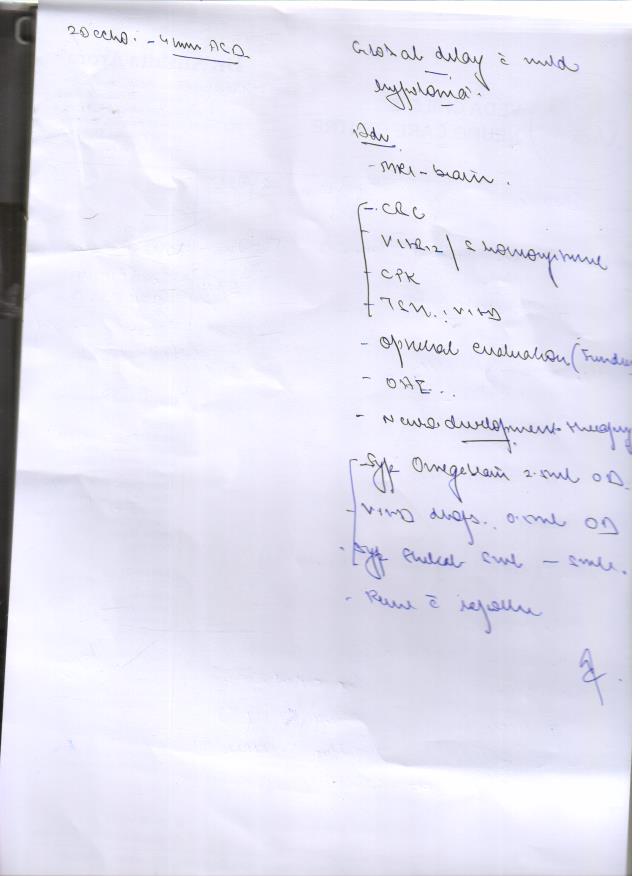 2D ECHO: - 4mm ASD
Global delay c̄ mild
hypotonia.
Adv
- MRI - brain.
- CBC
- Vit B12 / S homocysteine
- CPK
- TSH, Vit D
- Opthal evaluation (Fundus
- OAE...
- Neurodevelopment therapy
- Syp 2.5ml OD.
- Vit D drops.. 0.5ml OD
- Syp 5ml - 5ml.
- Revw c̄ reports